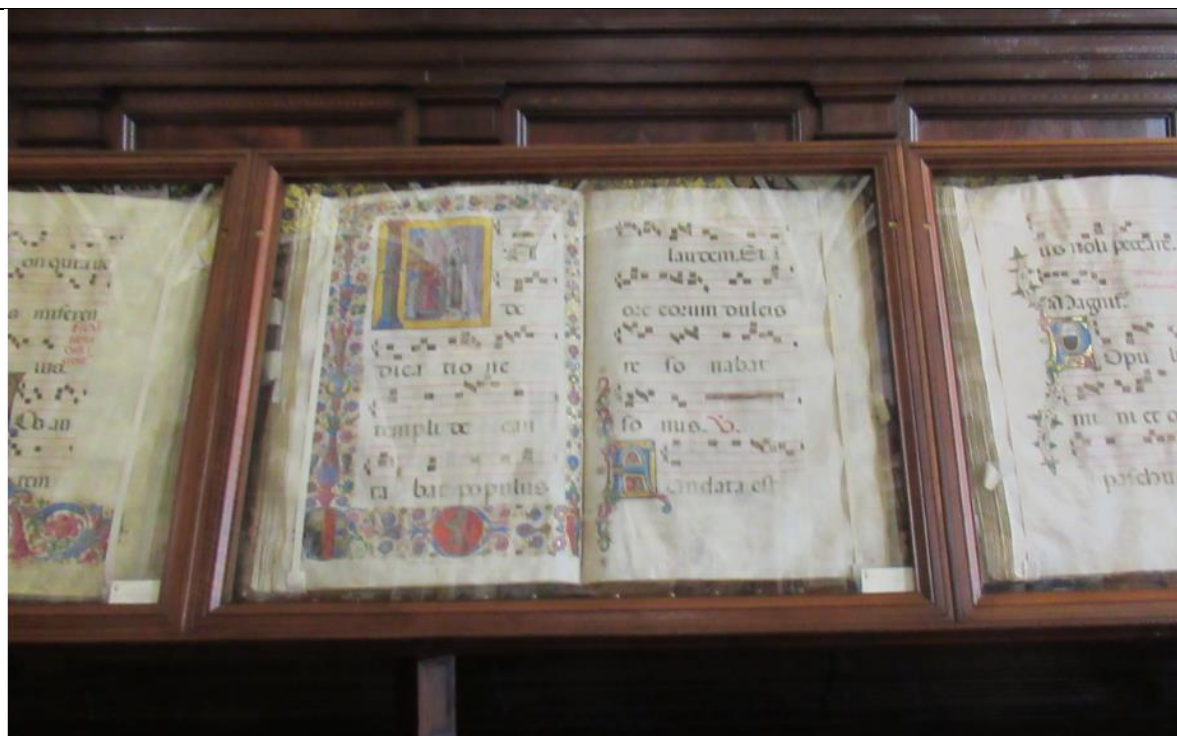 on quitate
a miseren
Ob au
rem
In de
dica tio ne
templi de can
ta bat populus
laudem. Et i
ore eorum dulcis
re so nabat
so nus. V.
undata est
us noli peccare.
Magnif.
Popu l
mi ni et o
pascebu